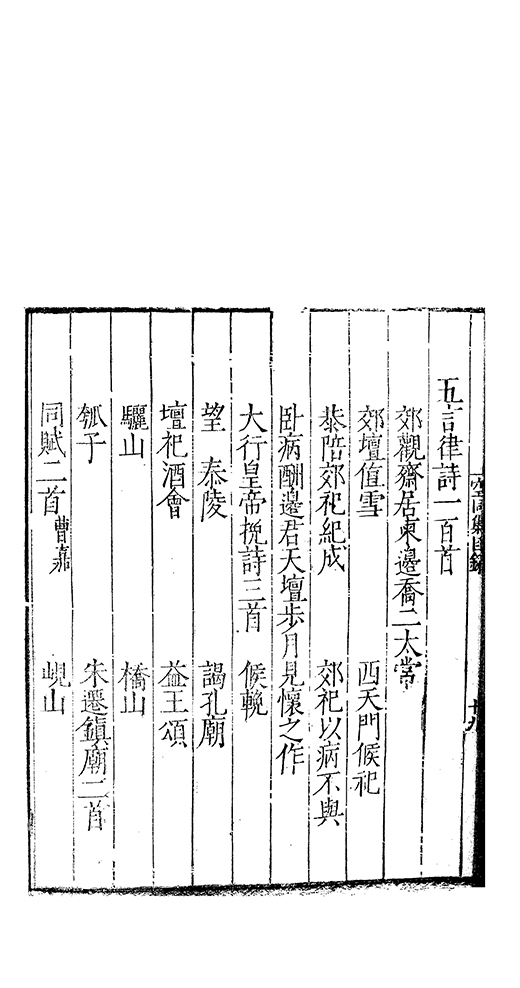 空同集目錄 十九
五言律詩一百首
郊觀齋居柬邊喬二太常
郊壇值雪 西天門候祀
恭陪郊祀紀成 郊祀以病不與
卧病酬邊君天壇步月見懷之作
大行皇帝挽詩三首 候輓
望 泰陵 謁孔廟
壇祀酒會 益王頌
驪山 橋山
瓠子 朱遷鎮廟二首
同賦二首 曹嘉 峴山